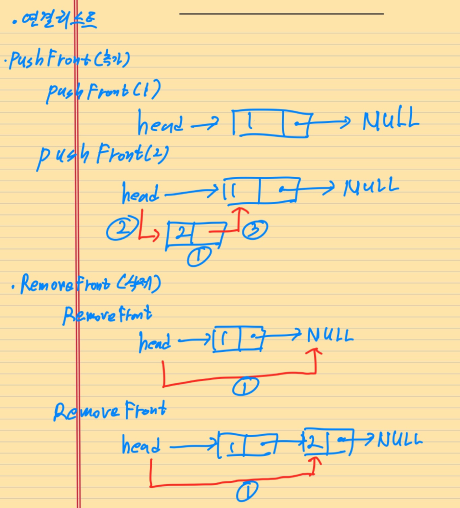 · 연결리스트
· PushFront(추가)
PushFront(1)
head → 1 → NULL
PushFront(2)
head → 1 → NULL
② 2 ③
①
· RemoveFront(삭제)
RemoveFront
head → 1 → NULL
①
Remove Front
head → 1 → 2 → NULL
①